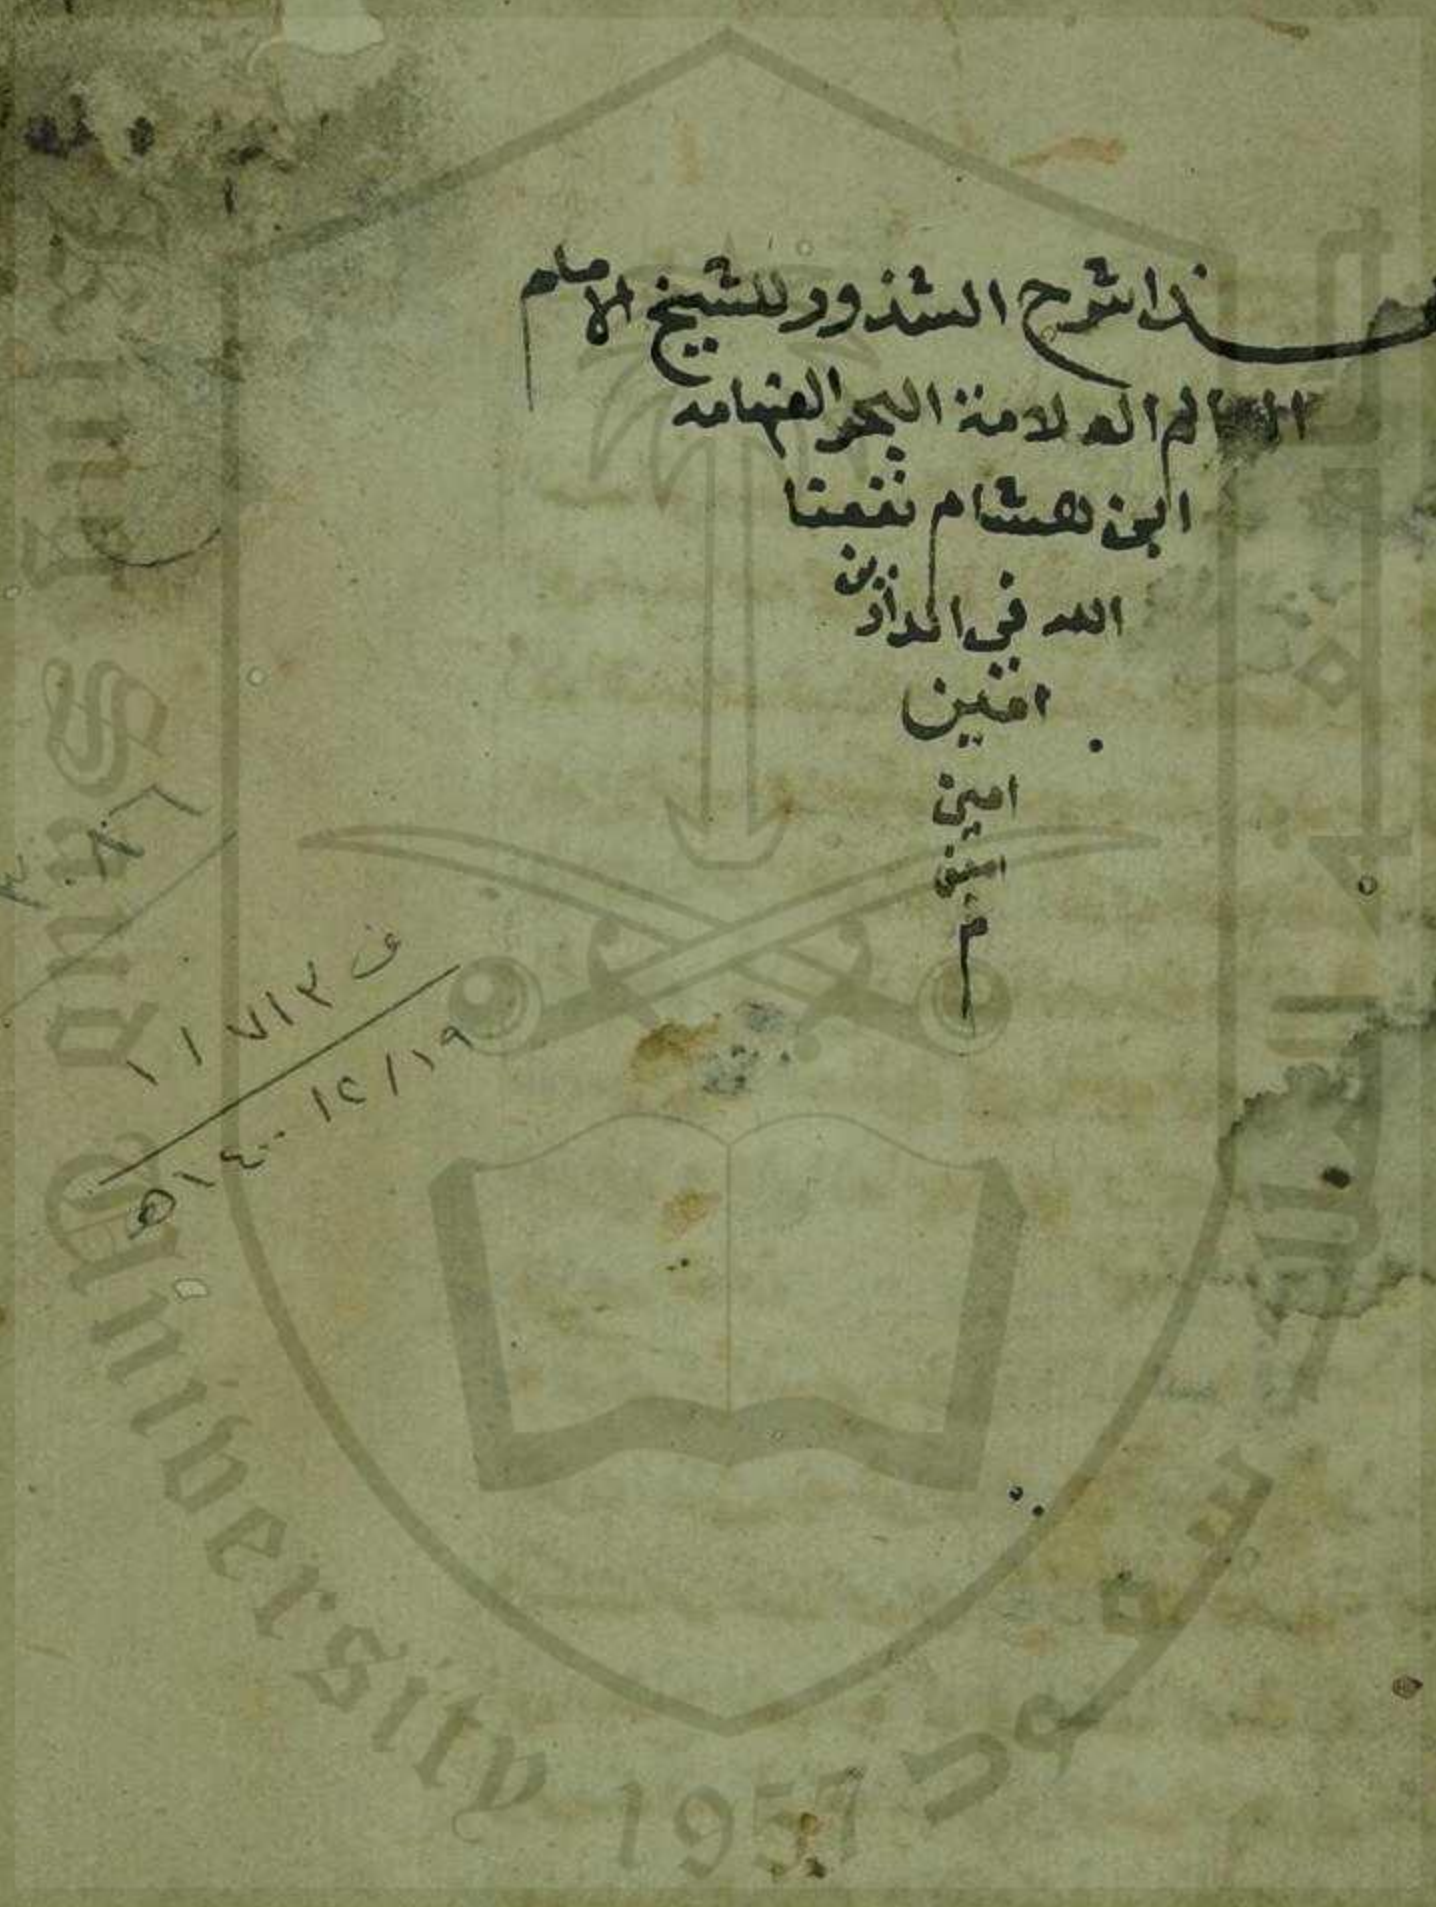 هذا شرح الشذور للشيخ الامام
العالم العلامة البحر الفهامه
ابن هشام نفعنا
الله في الدارين
امين
امين
امين
م
ف ١/٧١٣
١٤٠٠/١٢/١٩ ه
King Saud University 1957
جامعة الملك سعود